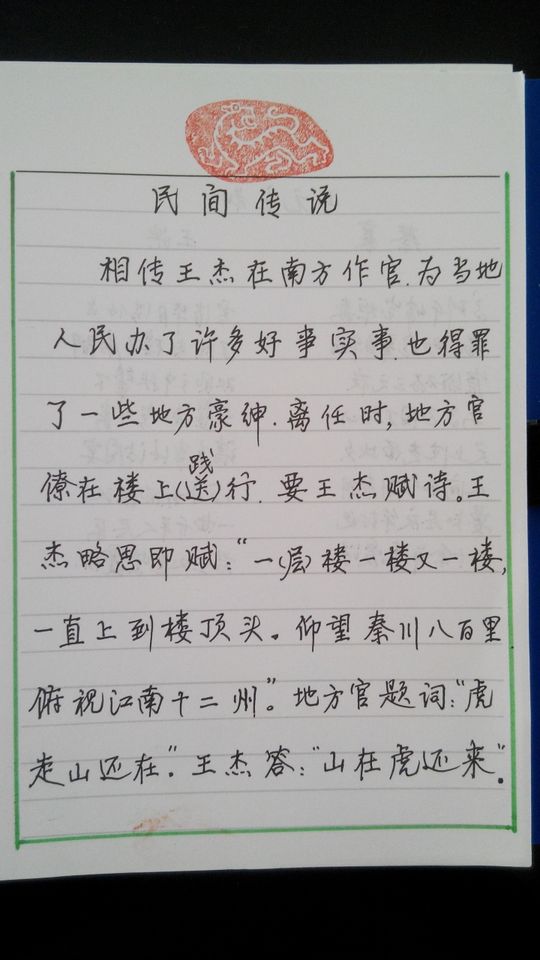 民间传说
相传王杰在南方作官.为当地
人民办了许多好事实事.也得罪
了一些地方豪绅.离任时,地方官
践
僚在楼上(送)行.要王杰赋诗。王
杰略思即赋:“一(层)楼一楼又一楼,
一直上到楼顶头。仰望秦川八百里
俯视江南十二州”。地方官题词:“虎
走山还在”。王杰答:“山在虎还来”.